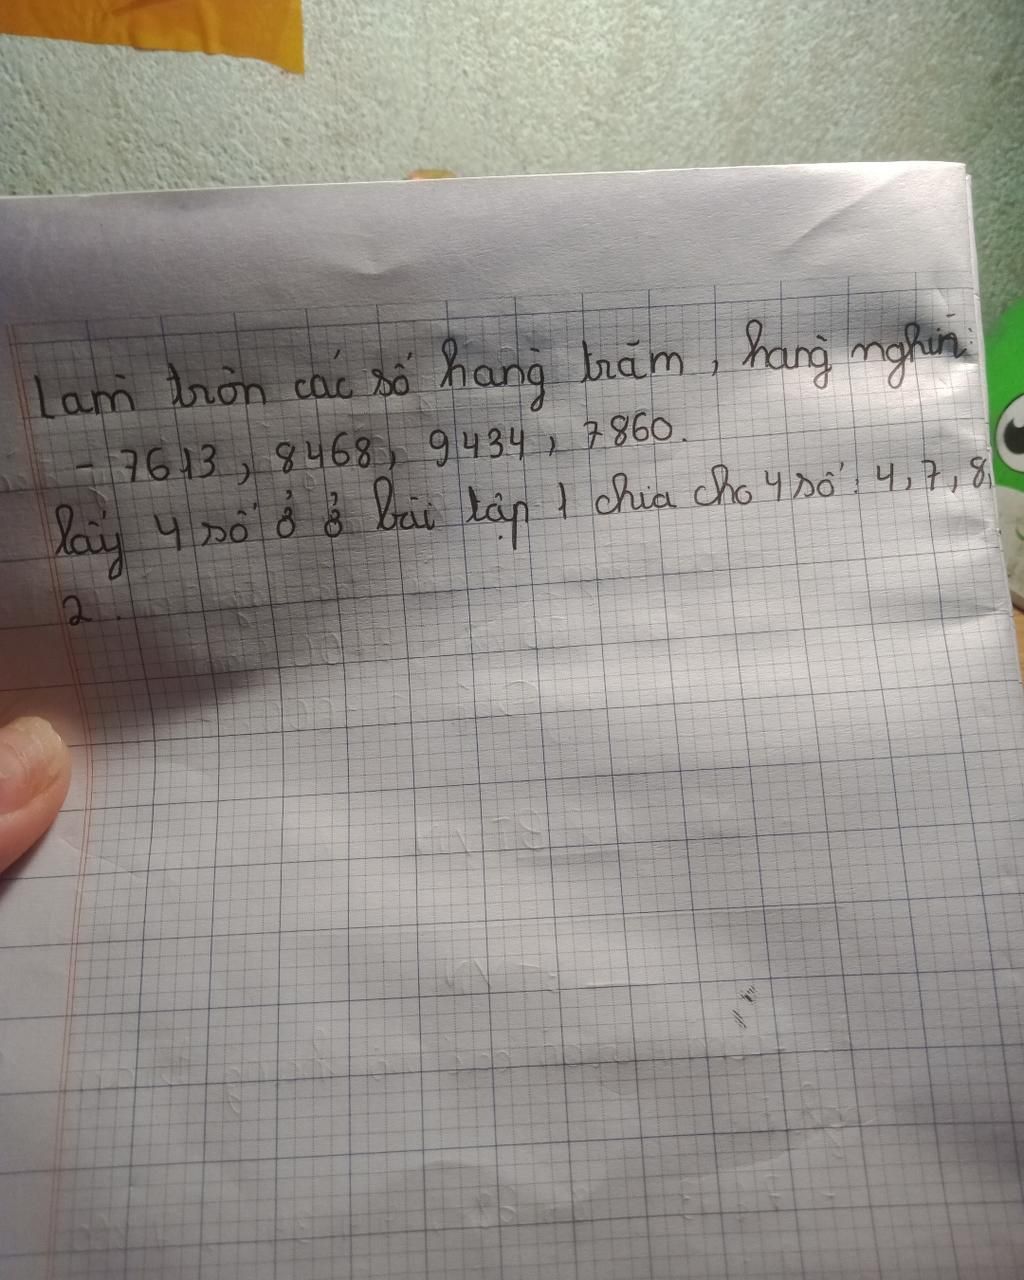 Làm tròn các số hàng trăm, hàng nghìn:
- 7613, 8468, 9434, 7860.
lấy 4 số ở ở bài tập 1 chia cho 4 số: 4, 7, 8,
2.